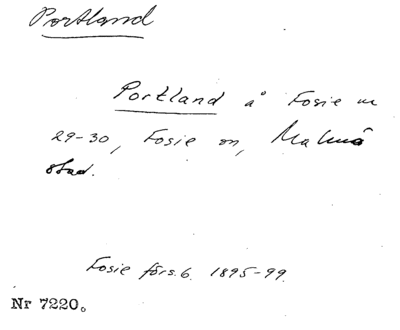 Portland
Portland å Fosie nr
29-30, Fosie sn, Malmö
stad.
Fosie förs. 6. 1895-99.
Nr 7220.